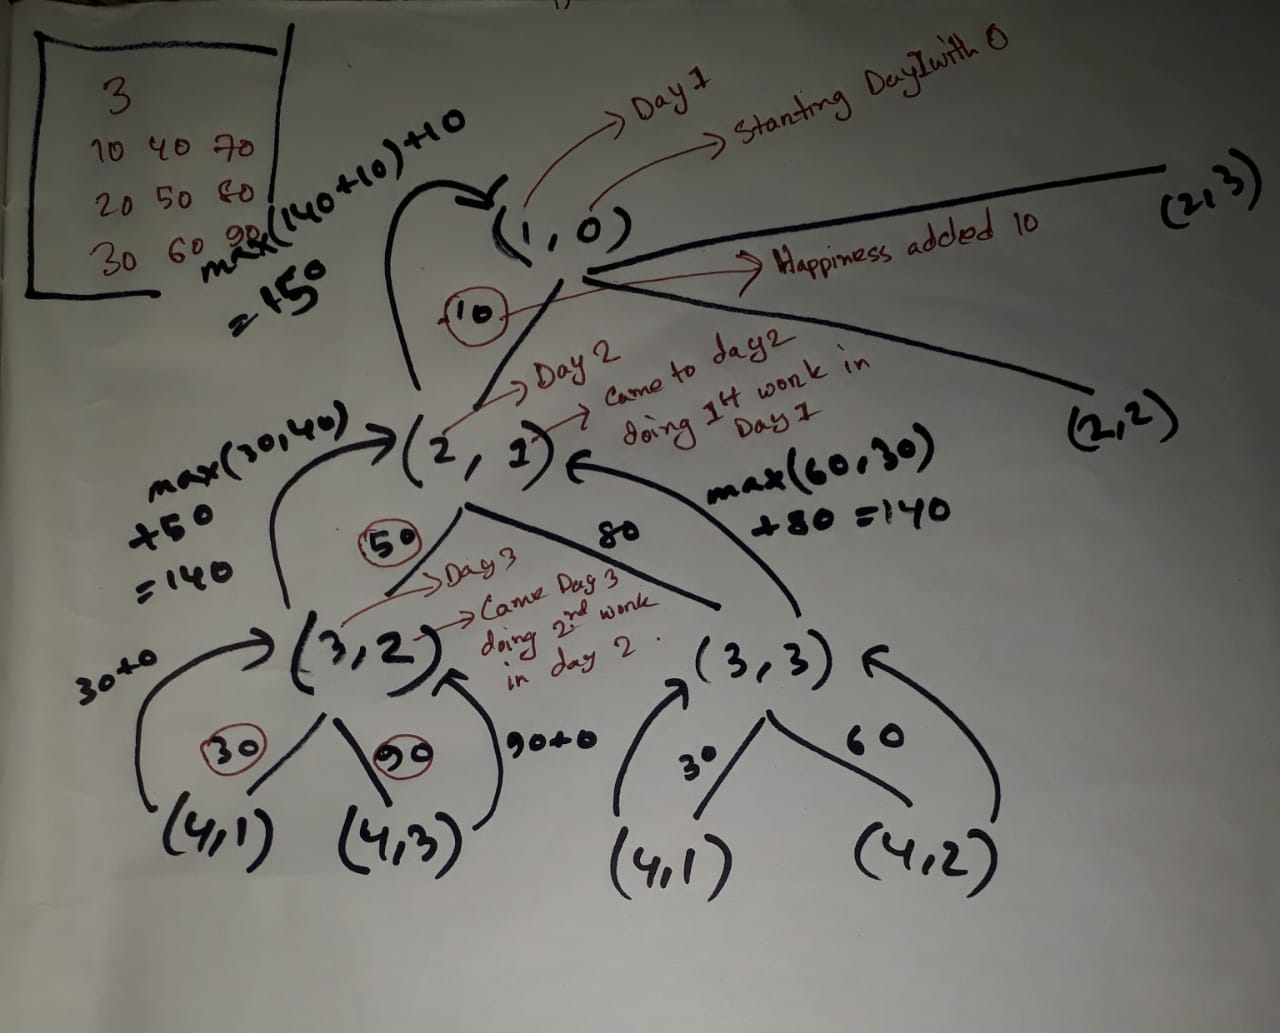 3
10 40 70
20 50 80
30 60 90
max(140+10)+10
= 150
Day 1
Starting Day1 with 0
(1,0)
(2,3)
10
Happiness added 10
(2,2)
Day 2
Came to day2
doing 1st work in
Day 1
(2,1)
max(30,40)
+50
=140
max(60,30)
+80 =140
50
80
Day 3
Came Day 3
doing 2nd work
in day 2.
(3,2)
(3,3)
30+0
30
90
90+0
30
60
(4,1)
(4,3)
(4,1)
(4,2)